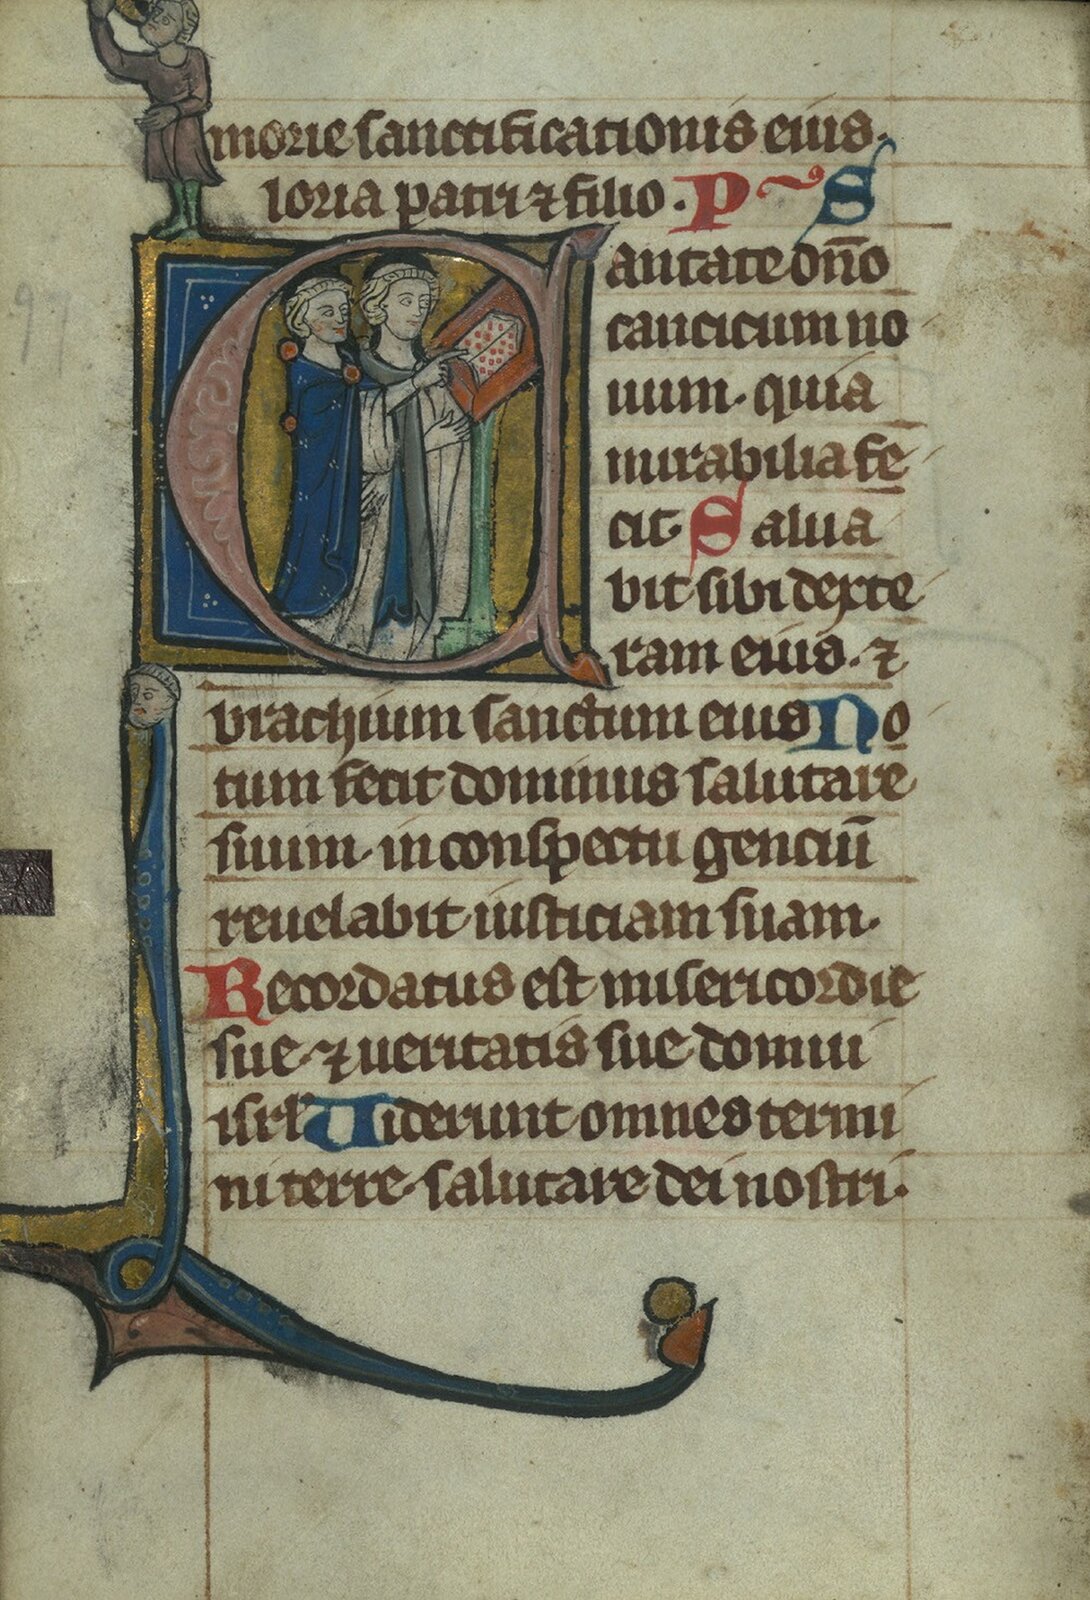 morie sanctificationis eius.
loria patri ⁊ filio. P S
C antate dn̄o
canticum no
uum. quia
mirabilia fe
cit. Salua
bit sibi dexte
ram eius. ⁊
brachium sanctum eius No
tum fecit dominus salutare
suum. in conspectu genciū
reuelabit iusticiam suam.
Recordatus est misericordie
sue. ⁊ ueritatis sue domui
isrl̄ Uiderunt omnes termi
ni terre. salutare dei nostri.